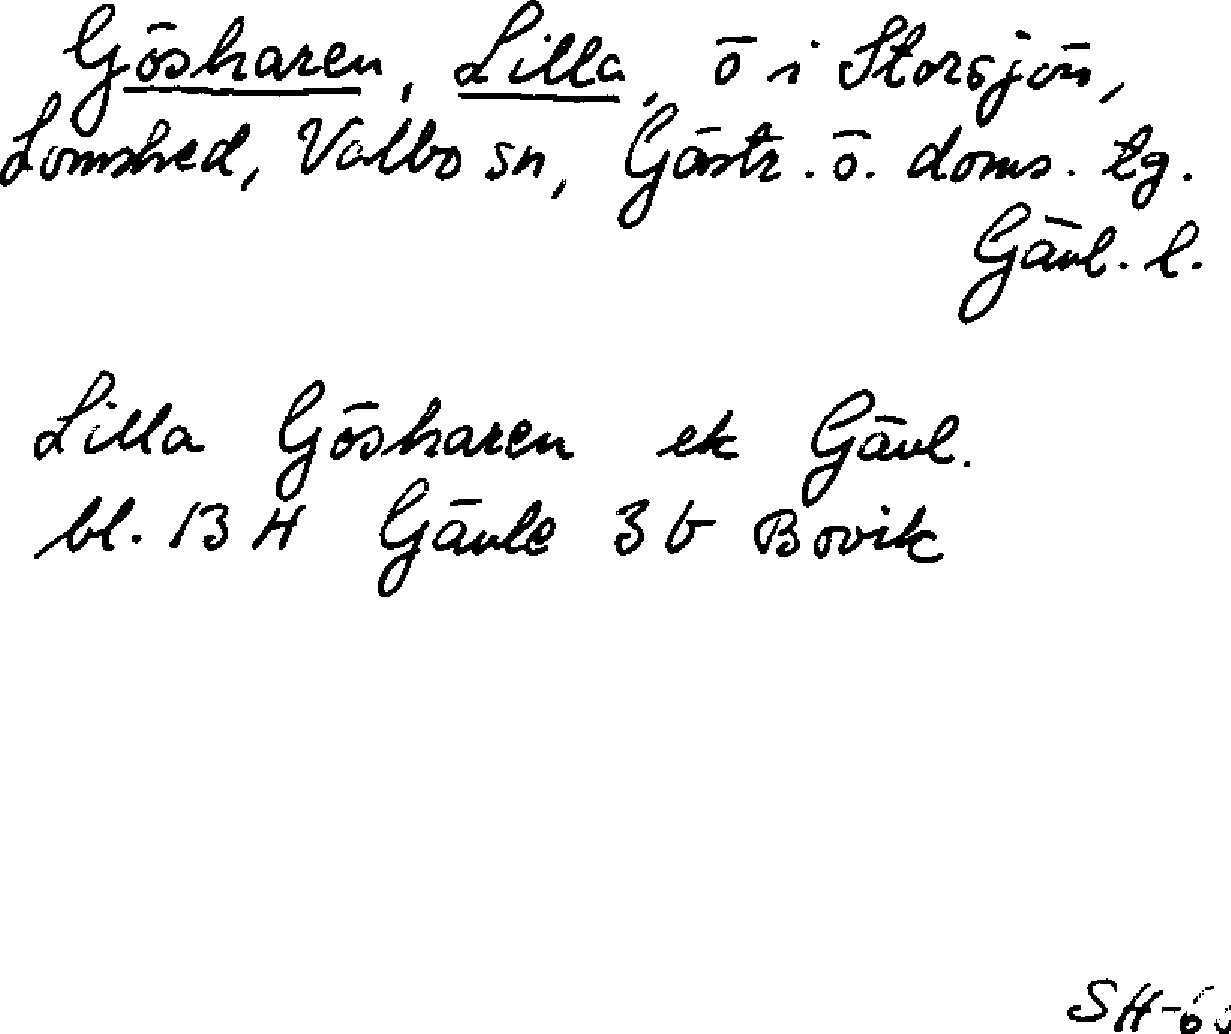 Gösharen, Lilla, ö i Storsjön,
Lomshed, Valbo sn, Gästr. ö. doms. tg.
Gävl. l.
Lilla Gösharen ek Gävl.
bl. 13 H Gävle 3 b Bovik